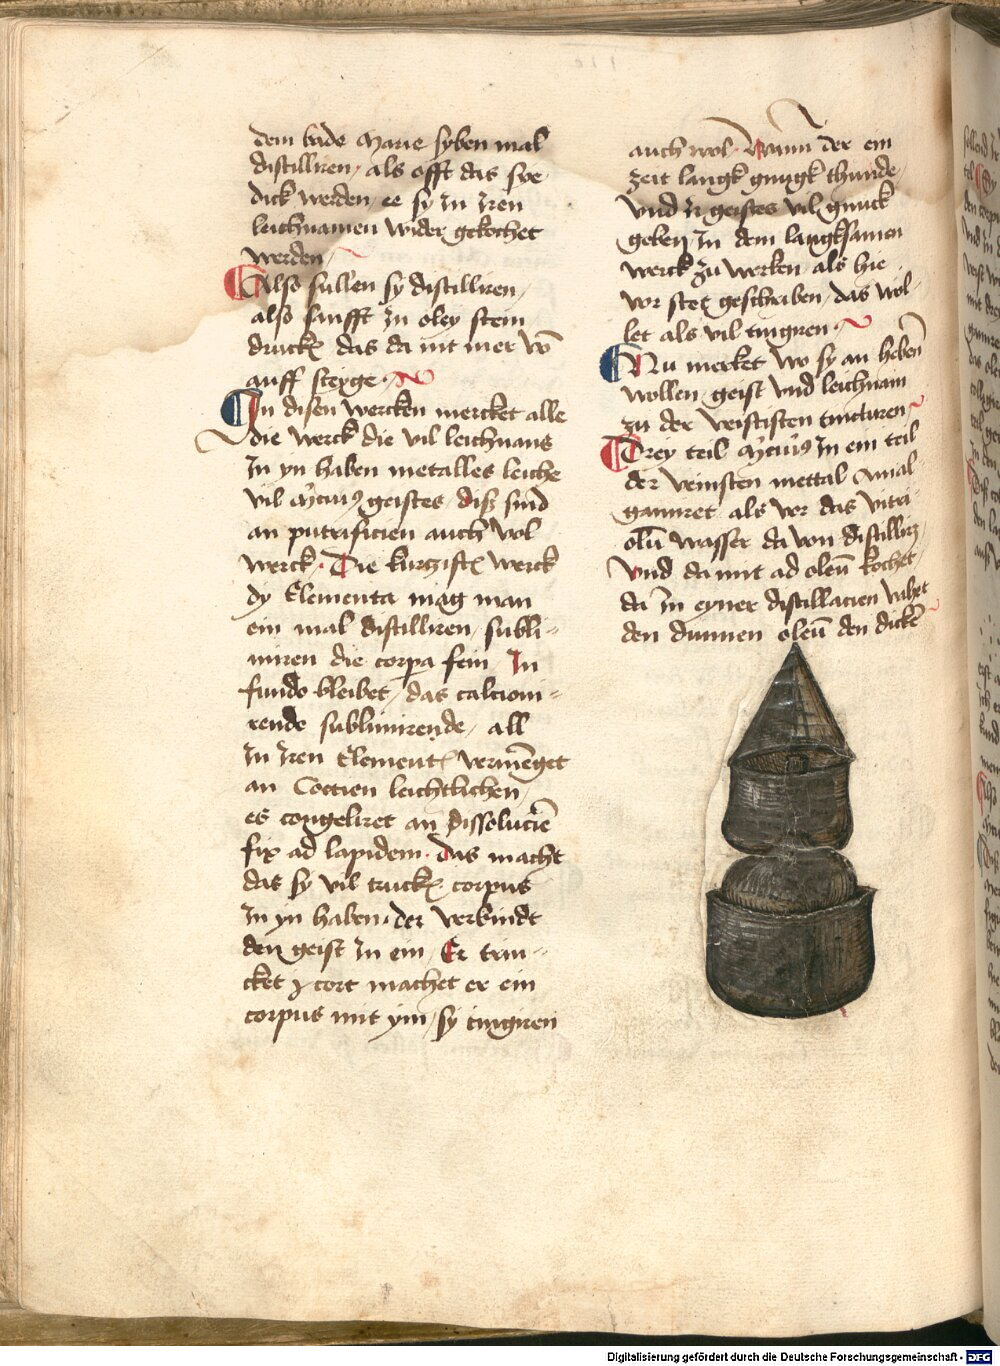 dem bade Marie syben mal
distilliren / als offt das sye
dick werden / ee sy Jn Jren
leichnamen wider gekochet
werden /
Also sullen sy distilliren /
also sanfft Jn oley stein
druckē das da nit mer vō
auff steyge ·
Jn disen wercken mercket alle
die werck die vil leichnams
Jn yn haben metalles leiche
vil geistes diß sind
an putrificien auch wol
werck · Die kurczistē werck
dy Elementa mag man
ein mal distilliren / subli-
miren die corpa fein Jn
fundo bleibet / das calcioni-
rende sublimirende / all
Jn Jren Elementē vermēget
an Coctien leichtlichen /
es congeliret an dissolucie
fix ad lapidem · das macht
das sy vil truckē corpus
Jn yn haben · der verkindt
den geist Jn ein / Er trin-
cket machet er ein
corpus mit ym / sy tingiren
auch wol · Wann der ein
zeit langk gnugk thunde /
vnd Jr geistes vil gnuck
geben / Jn dem langksamen
werck zu werken als hie
vor stet geschriben / das wol-
let als vil tingiren ·
Nu mercket wo sy an heben
wollen / geist vnd leichnam
zu der weissten tincturen
Drey teil Jn ein teil
der veinsten mettal Amal-
gamiret als vor das vitri-
olū wasser da von distillirt
vnd da mit ad oleū kochet /
da Jn eyner distillacien
den dunnen oleū den dickē
Digitalisierung gefördert durch die Deutsche Forschungsgemeinschaft - DFG